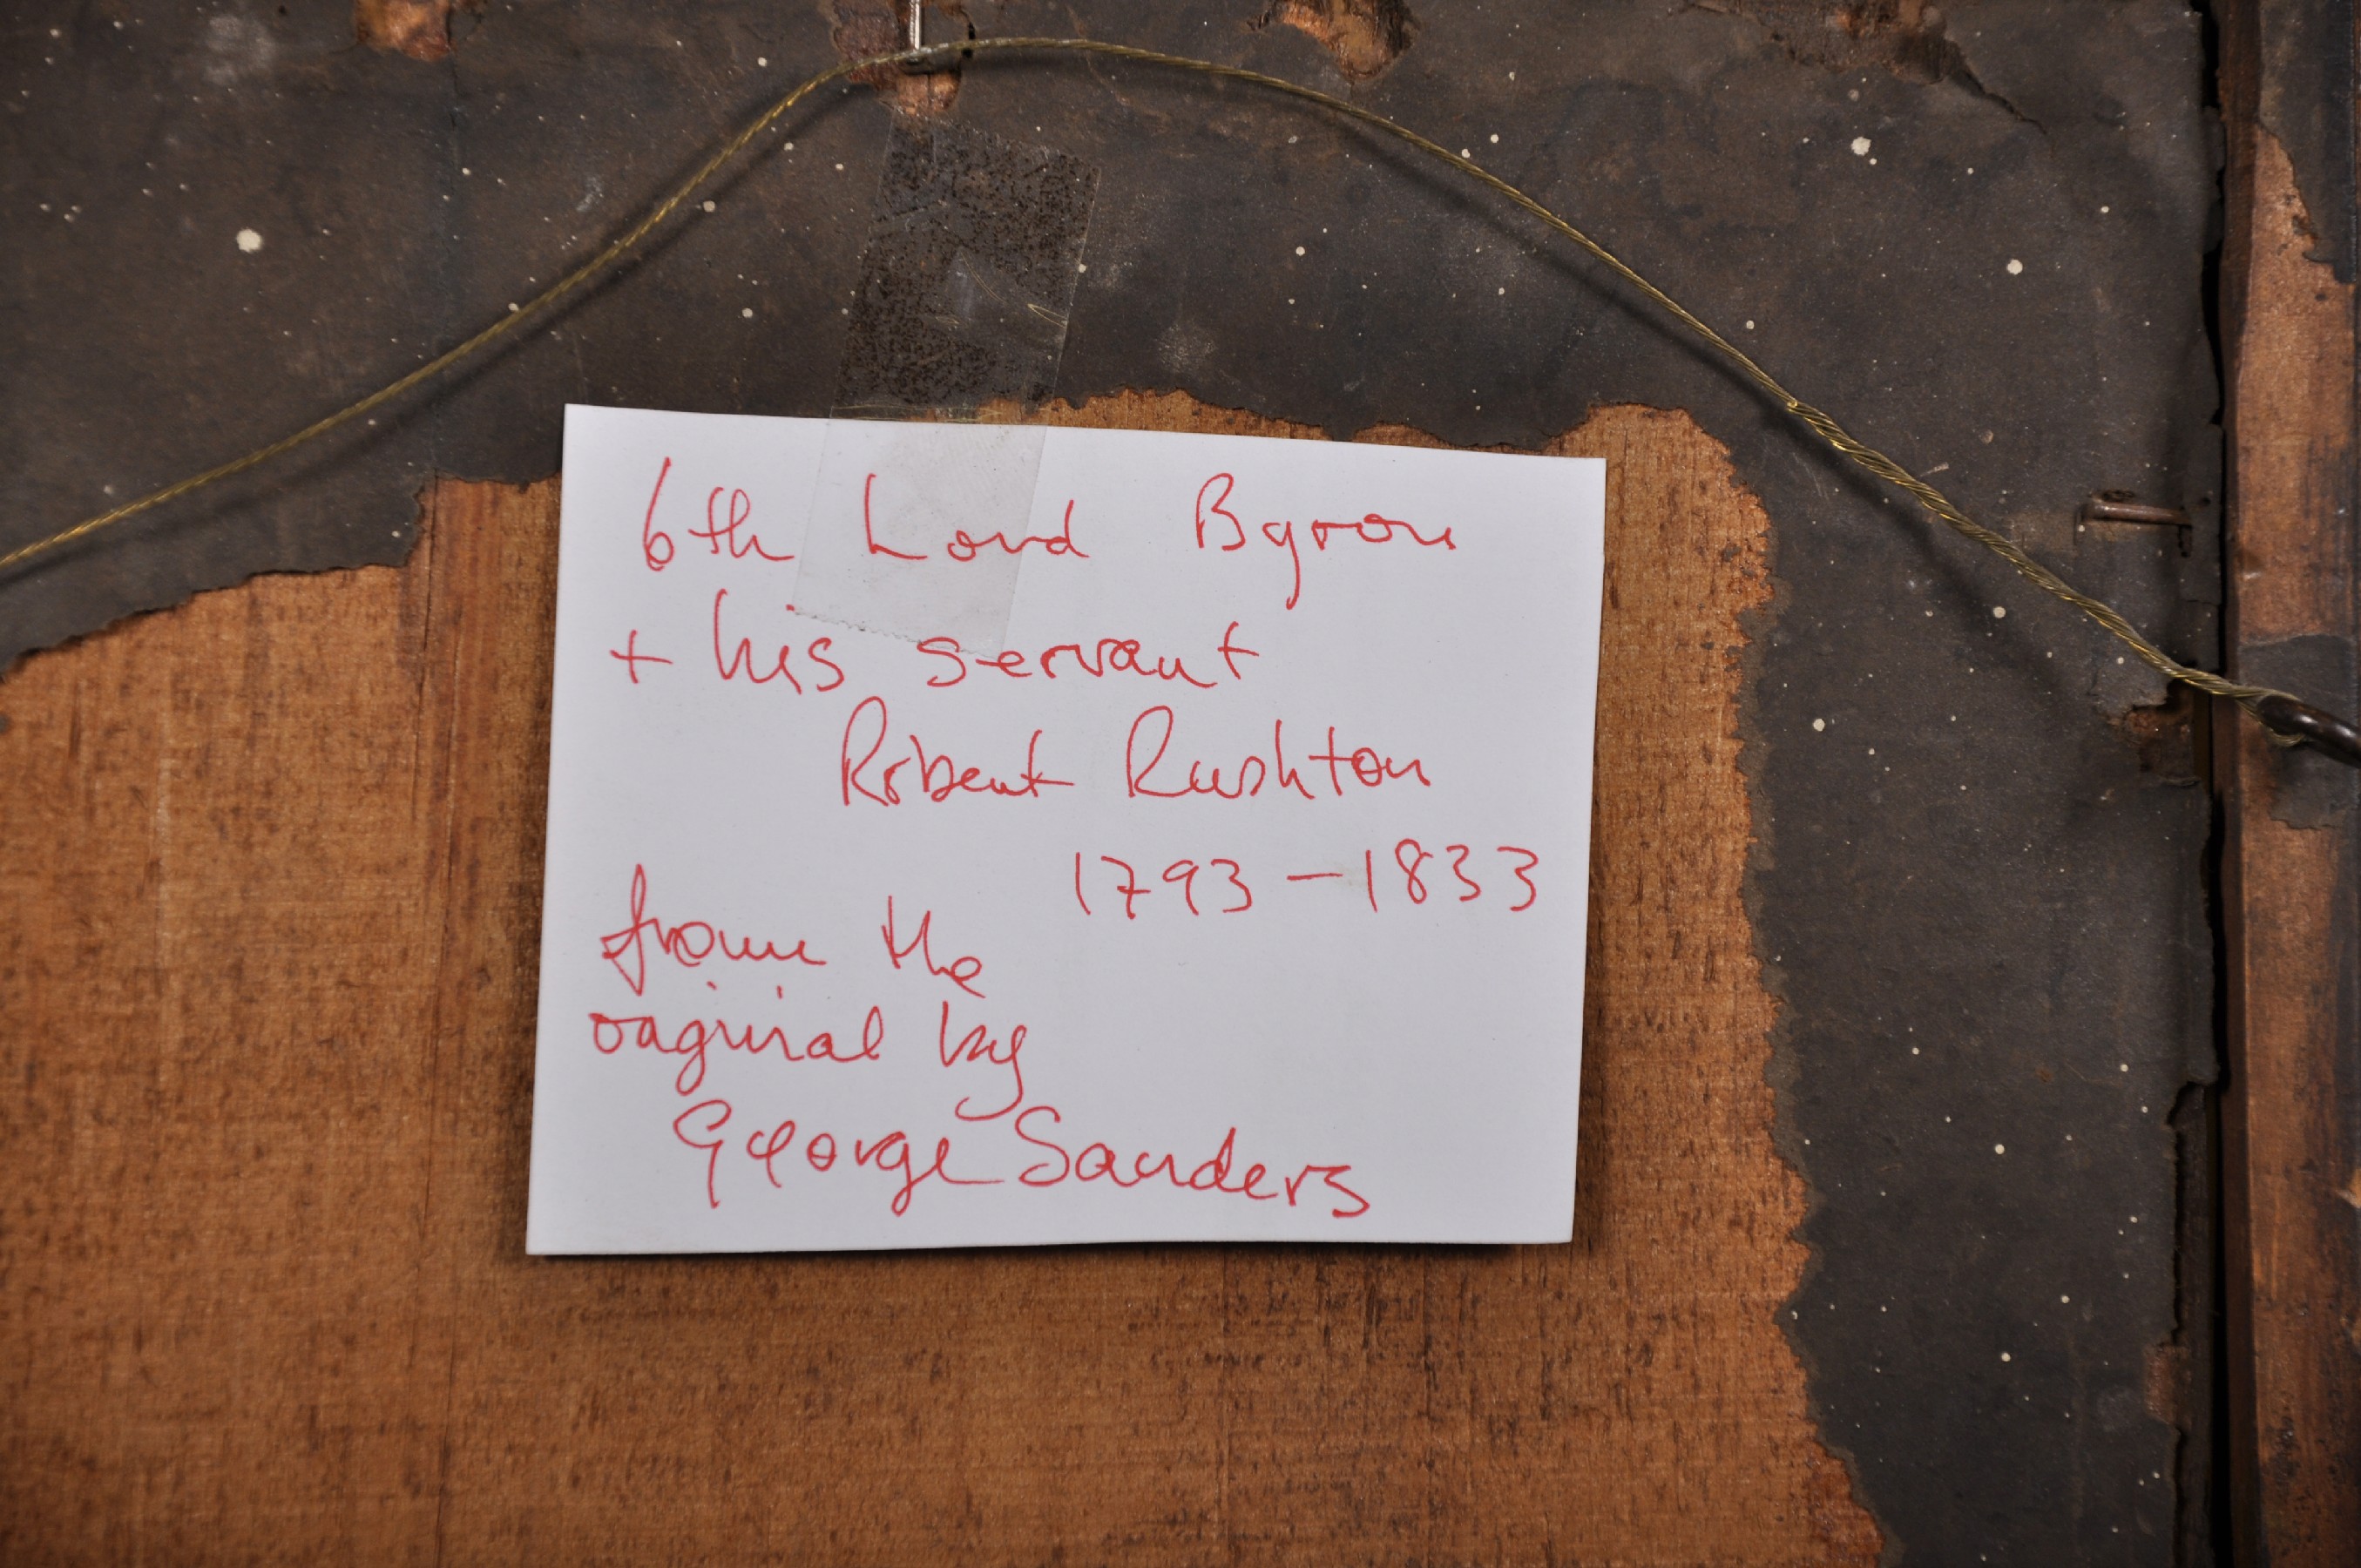 6th Lord Byron
+ his servant
Robert Rushton
1793 - 1833
from the
original by
George Sanders